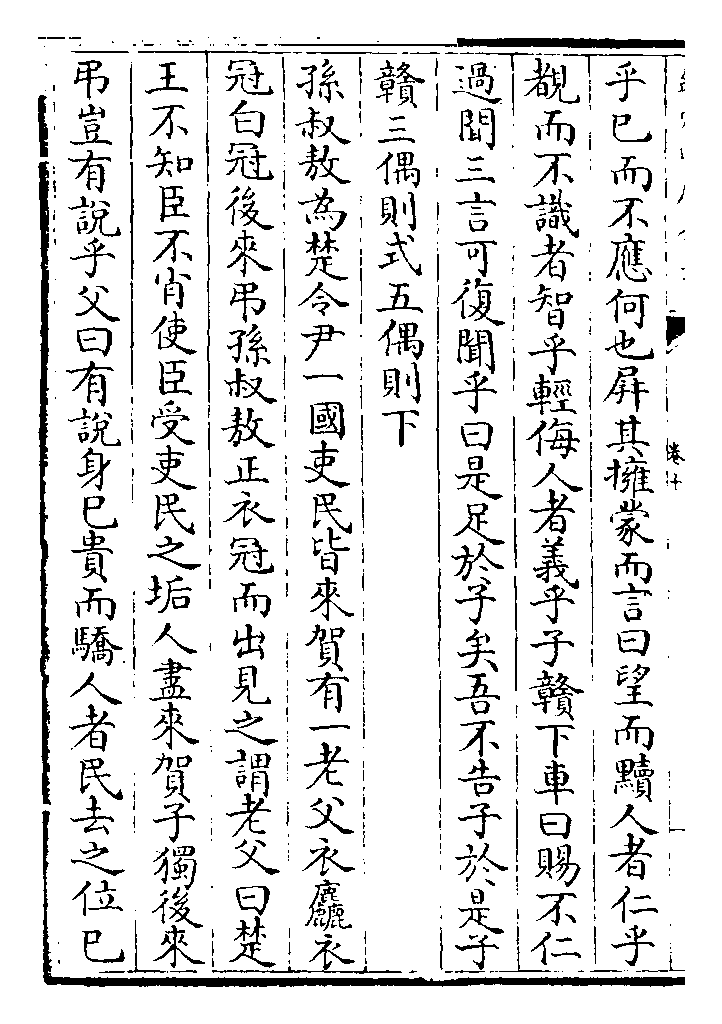 乎巳而不應何也屏其擁蒙而言曰望而黷人者仁乎
覩而不識者智乎輕侮人者義乎子贛下車曰賜不仁
過聞三言可復聞乎曰是足於子矣吾不告子於是子
贛三偶則式五偶則下
孫叔敖為楚令尹一國吏民皆來賀有一老父衣麤衣
冠白冠後來弔孫叔敖正衣冠而出見之謂老父曰楚
王不知臣不肖使臣受吏民之垢人盡來賀子獨後來
弔豈有說乎父曰有說身巳貴而驕人者民去之位巳
卷十